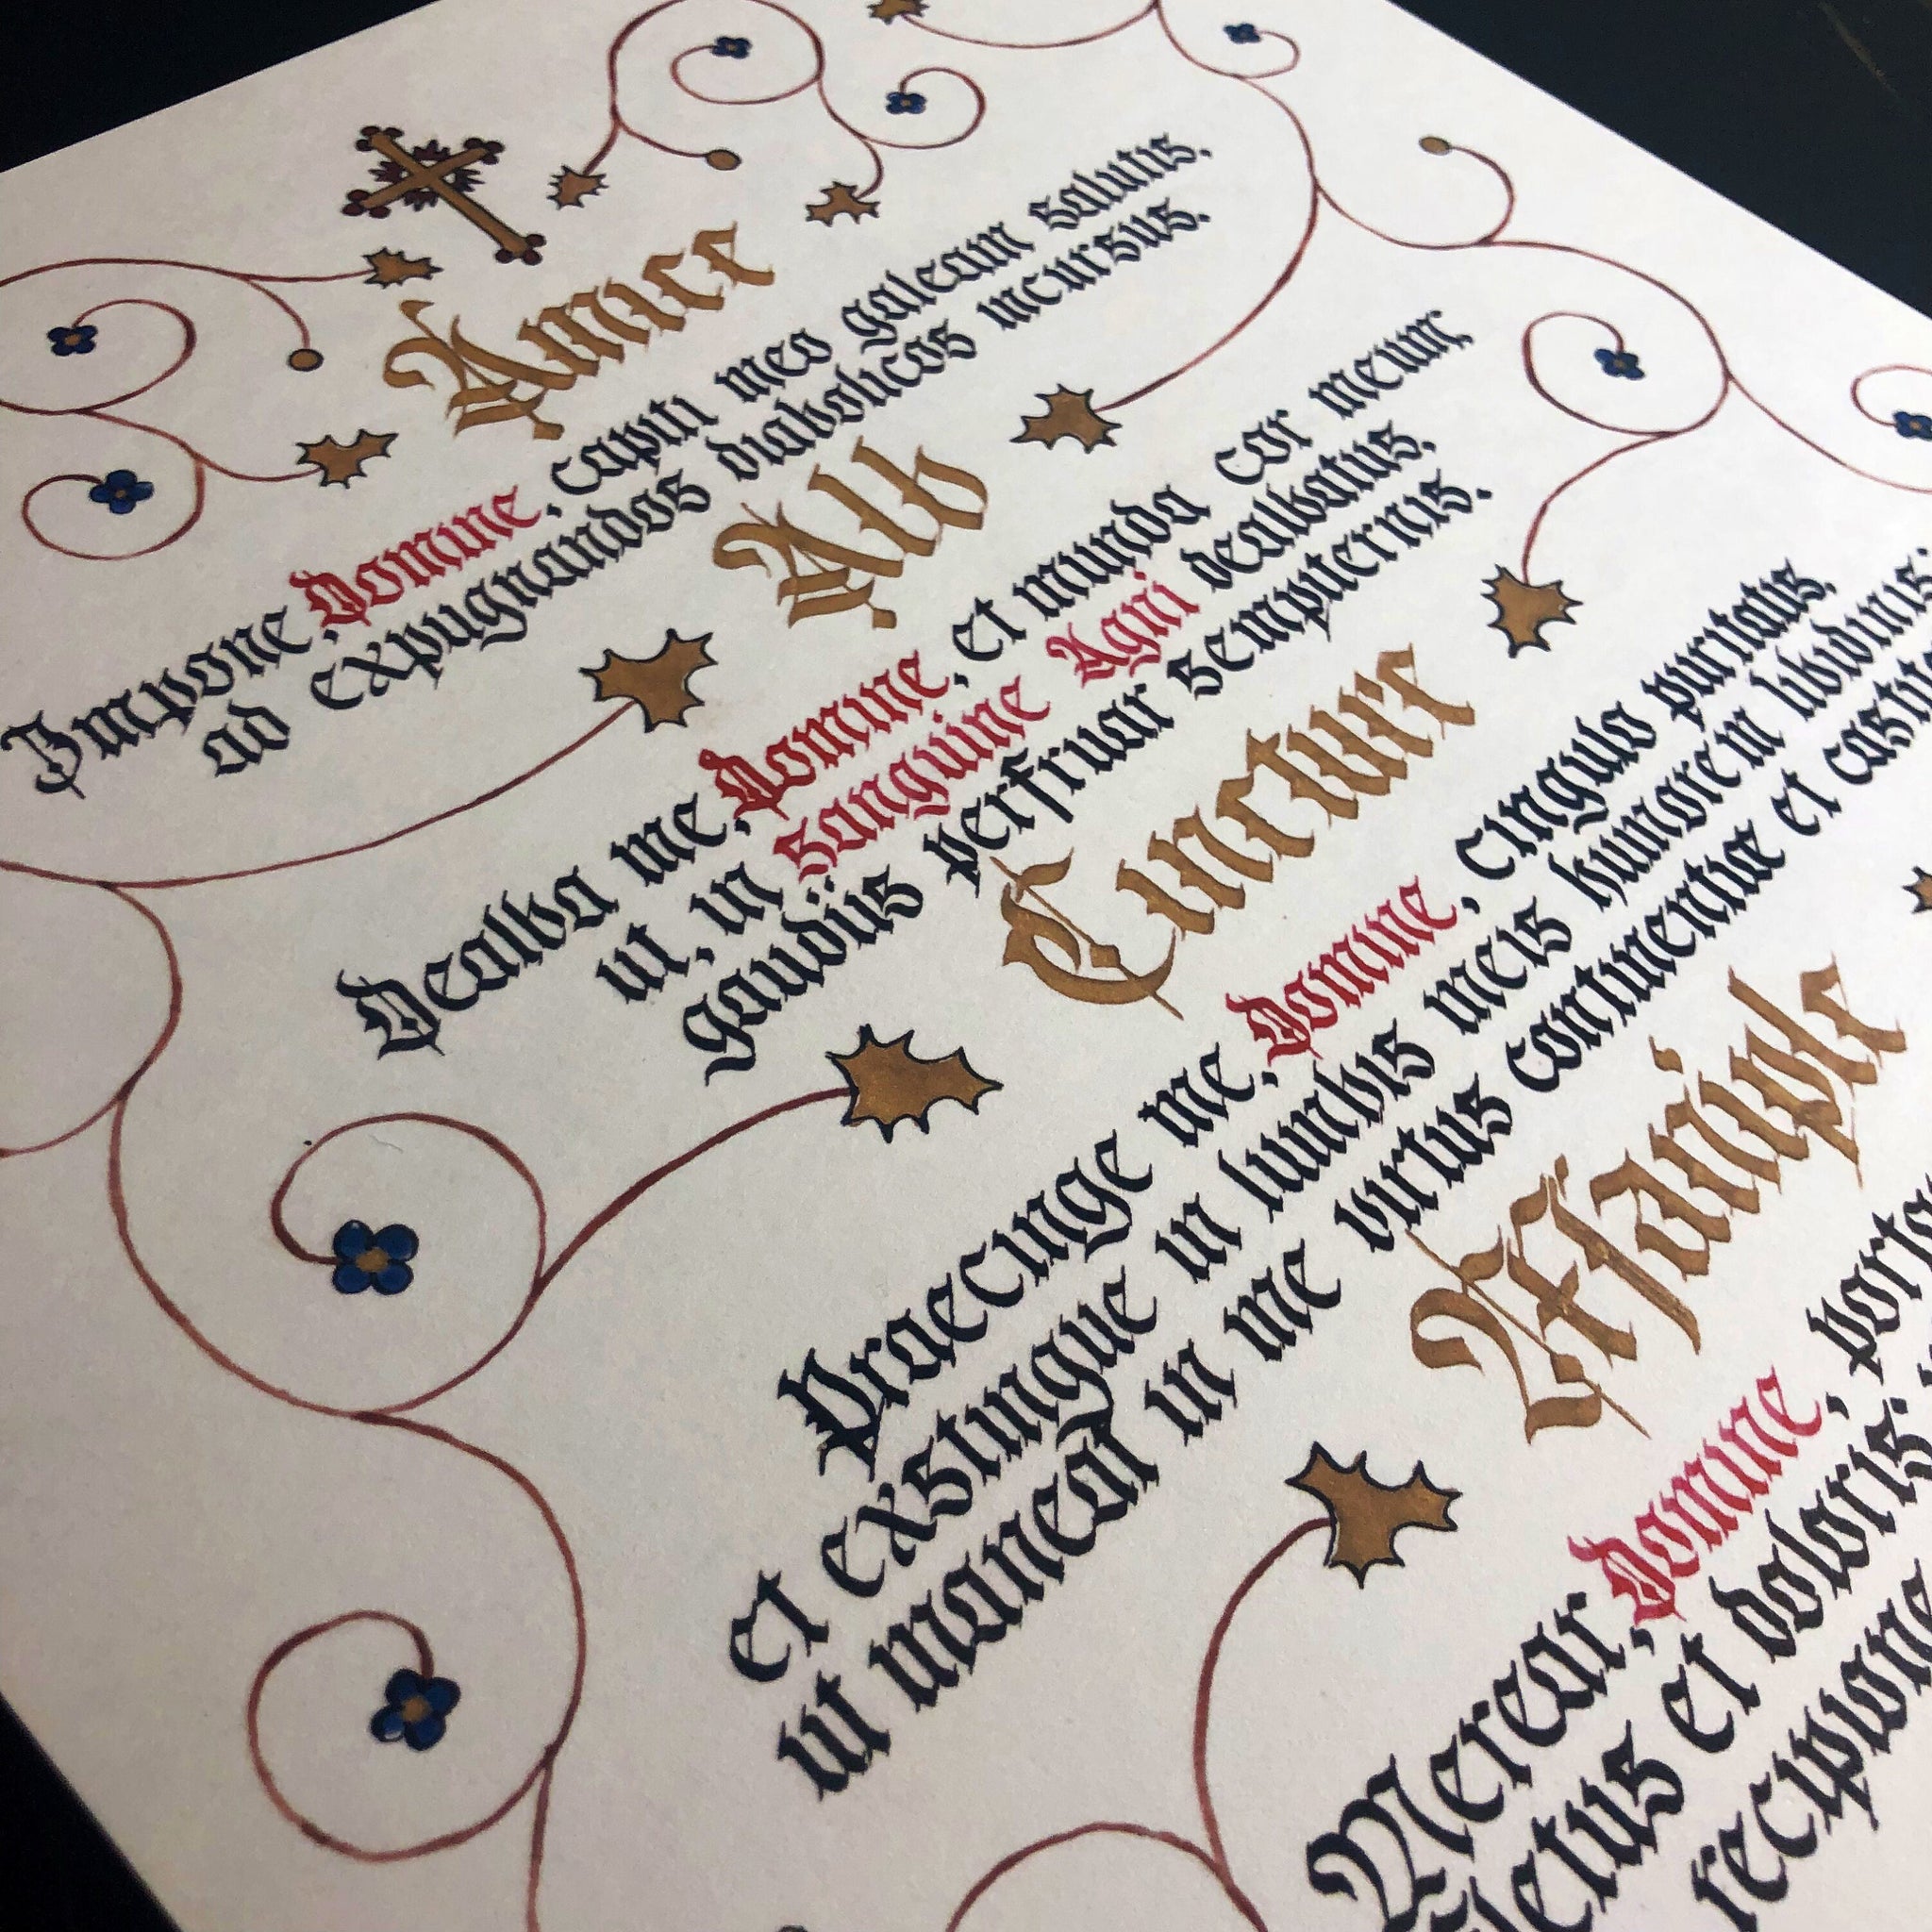 Amice
Impone, Domine, capiti meo galeam salutis,
ad expugnandos diabolicos incursus.
Alb
Dealba me, Domine, et munda cor meum;
ut, in Sanguine Agni dealbatus,
gaudiis perfruar sempiternis.
Cincture
Praecinge me, Domine, cingulo puritatis,
et exstingue in lumbis meis humorem libidinis;
ut maneat in me virtus continentiæ et
Maniple
Merear, Domine,
fletus et doloris:
recipione